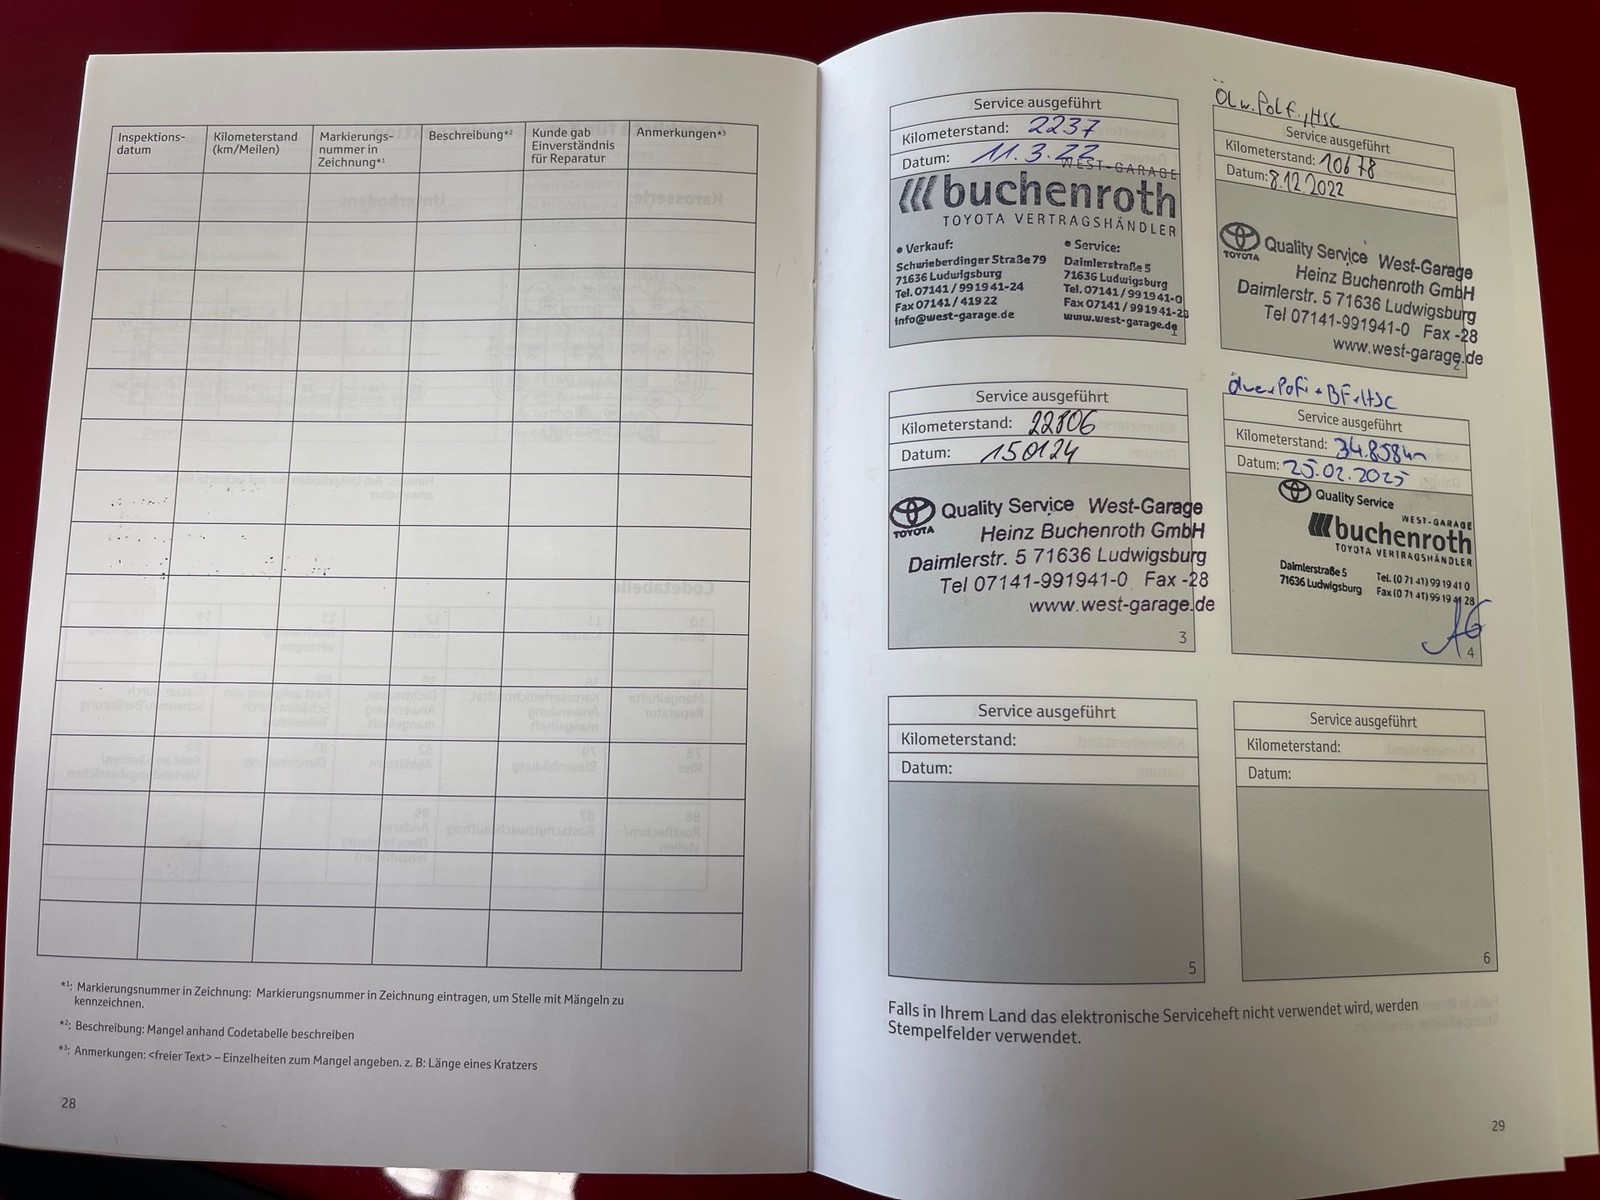 Inspektions-
datum
Kilometerstand
(km/Meilen)
Markierungs-
nummer in
Zeichnung*1
Beschreibung*2
Kunde gab
Einverständnis
für Reparatur
Anmerkungen*3
*1: Markierungsnummer in Zeichnung: Markierungsnummer in Zeichnung eintragen, um Stelle mit Mängeln zu
kennzeichnen.
*2: Beschreibung: Mangel anhand Codetabelle beschreiben
*3: Anmerkungen: <freier Text> – Einzelheiten zum Mangel angeben. z. B: Länge eines Kratzers
28
Service ausgeführt
Kilometerstand: 2237
Datum: 11.3.22
WEST-GARAGE
buchenroth
TOYOTA VERTRAGSHÄNDLER
• Verkauf:
Schwieberdinger Straße 79
71636 Ludwigsburg
Tel. 07141 / 99 19 41-24
Fax 07141 / 419 22
info@west-garage.de
• Service:
Daimlerstraße 5
71636 Ludwigsburg
Tel. 07141 / 99 19 41-0
Fax 07141 / 991941-28
www.west-garage.de
1
Öl w. Pol F., HSC
Service ausgeführt
Kilometerstand: 10678
Datum: 8.12.2022
TOYOTA
Quality Service West-Garage
Heinz Buchenroth GmbH
Daimlerstr. 5 71636 Ludwigsburg
Tel 07141-991941-0 Fax -28
www.west-garage.de
2
Service ausgeführt
Kilometerstand: 22806
Datum: 150124
TOYOTA
Quality Service West-Garage
Heinz Buchenroth GmbH
Daimlerstr. 5 71636 Ludwigsburg
Tel 07141-991941-0 Fax -28
www.west-garage.de
3
+ BF + HSC
Service ausgeführt
Kilometerstand: 34.858km
Datum: 25.02.2025
TOYOTA
Quality Service
WEST-GARAGE
buchenroth
TOYOTA VERTRAGSHÄNDLER
Daimlerstraße 5
71636 Ludwigsburg
Tel. (0 71 41) 99 19 41 0
Fax (0 71 41) 99 19 41 28
4
Service ausgeführt
Kilometerstand:
Datum:
5
Service ausgeführt
Kilometerstand:
Datum:
6
Falls in Ihrem Land das elektronische Serviceheft nicht verwendet wird, werden
Stempelfelder verwendet.
29